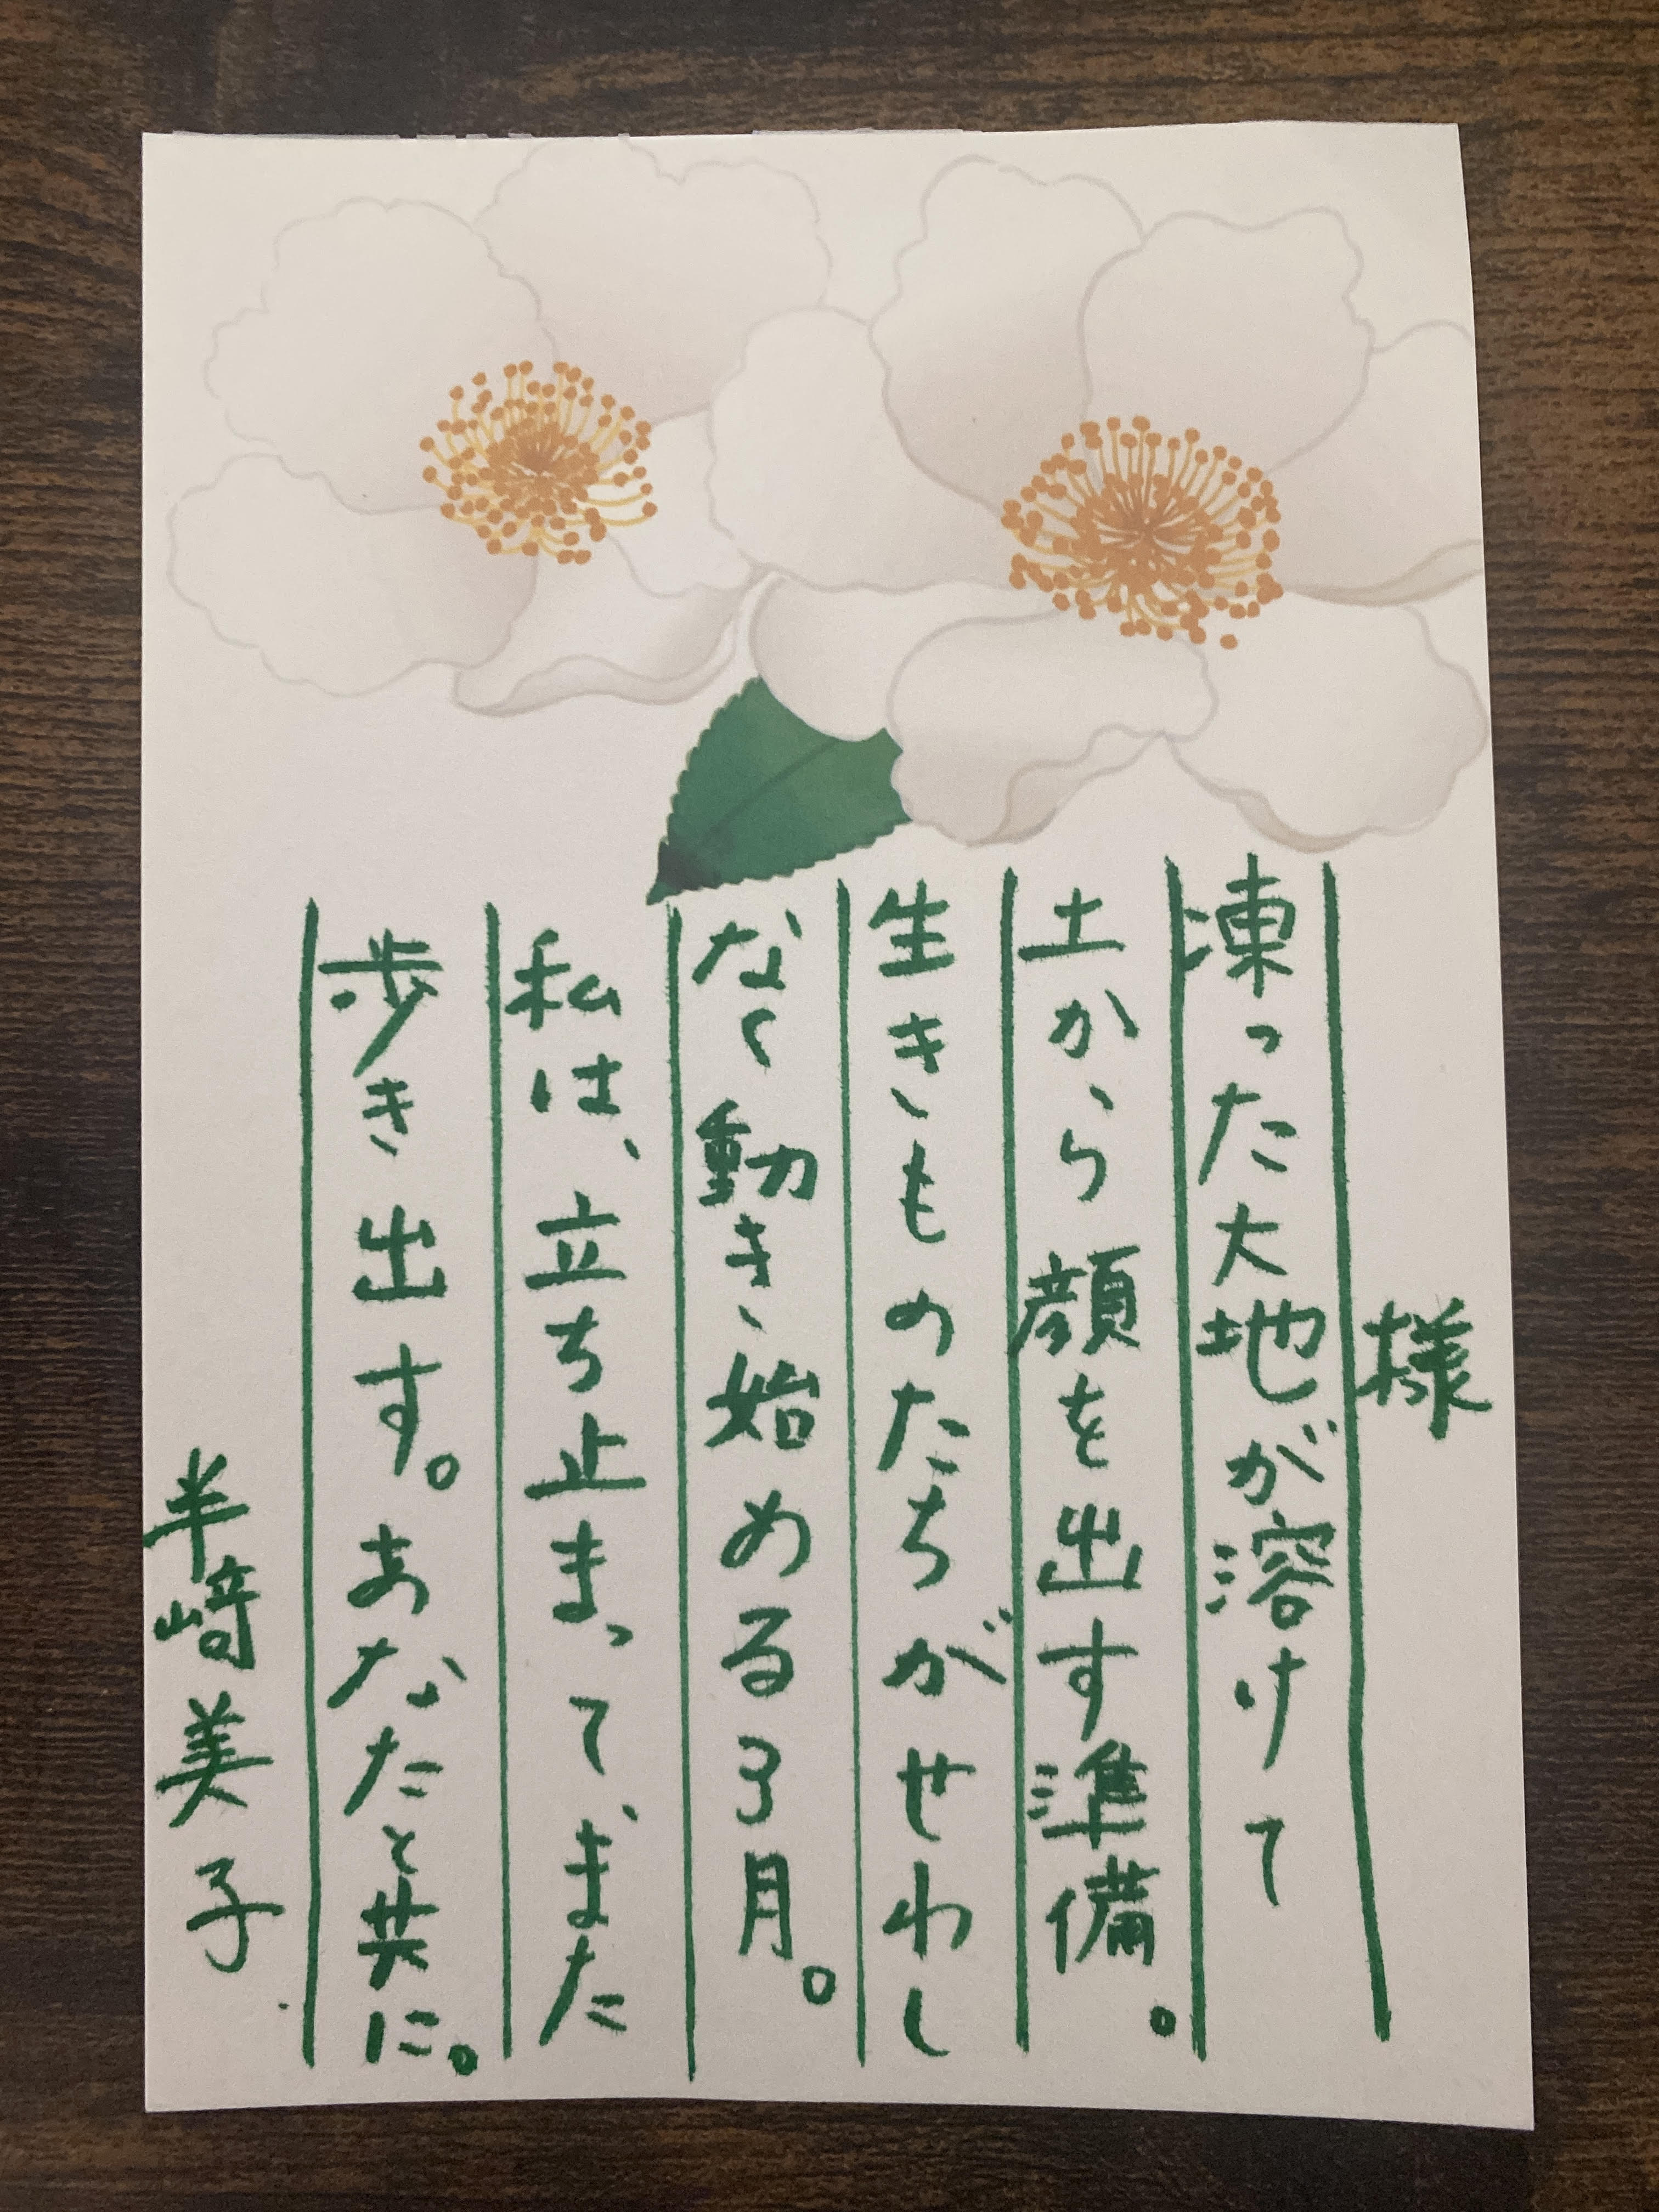 様
凍った大地が溶けて
土から顔を出す準備。
生きものたちがせわし
なく動き始める3月。
私は、立ち止まって、また
歩き出す。あなたと共に。
半﨑美子